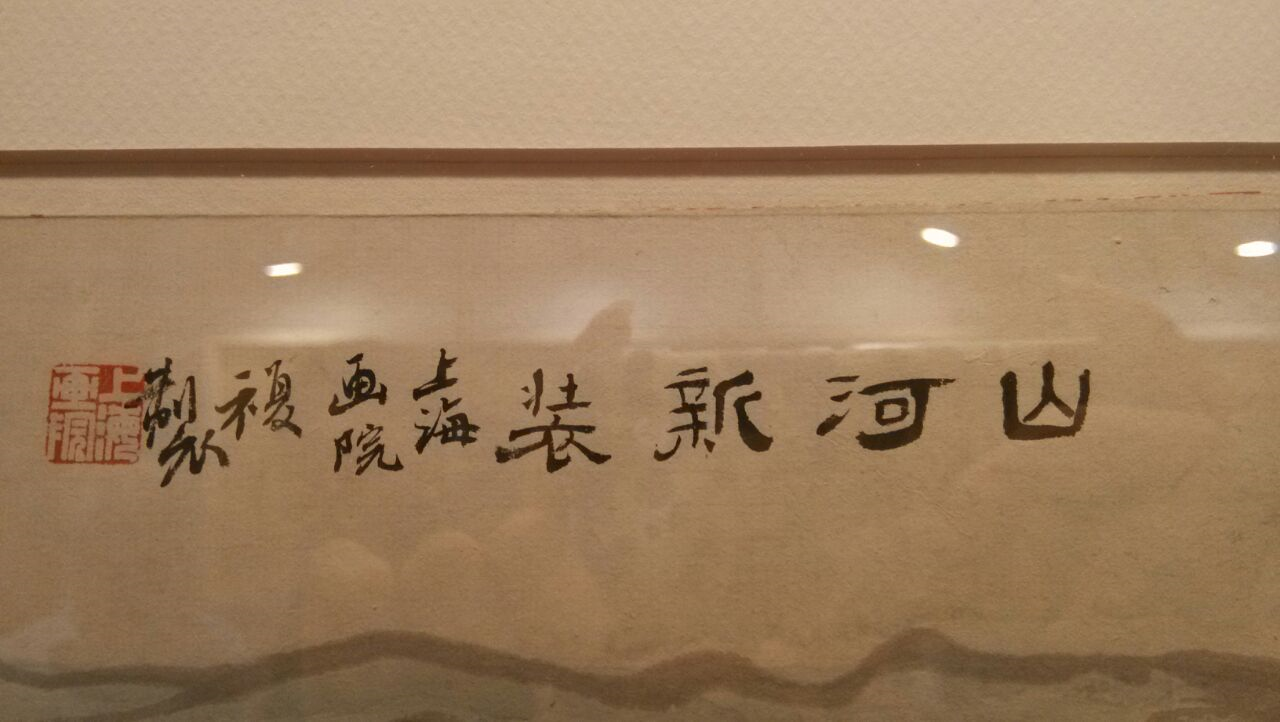 山河新装
上海
画院
複
製
上海
画院